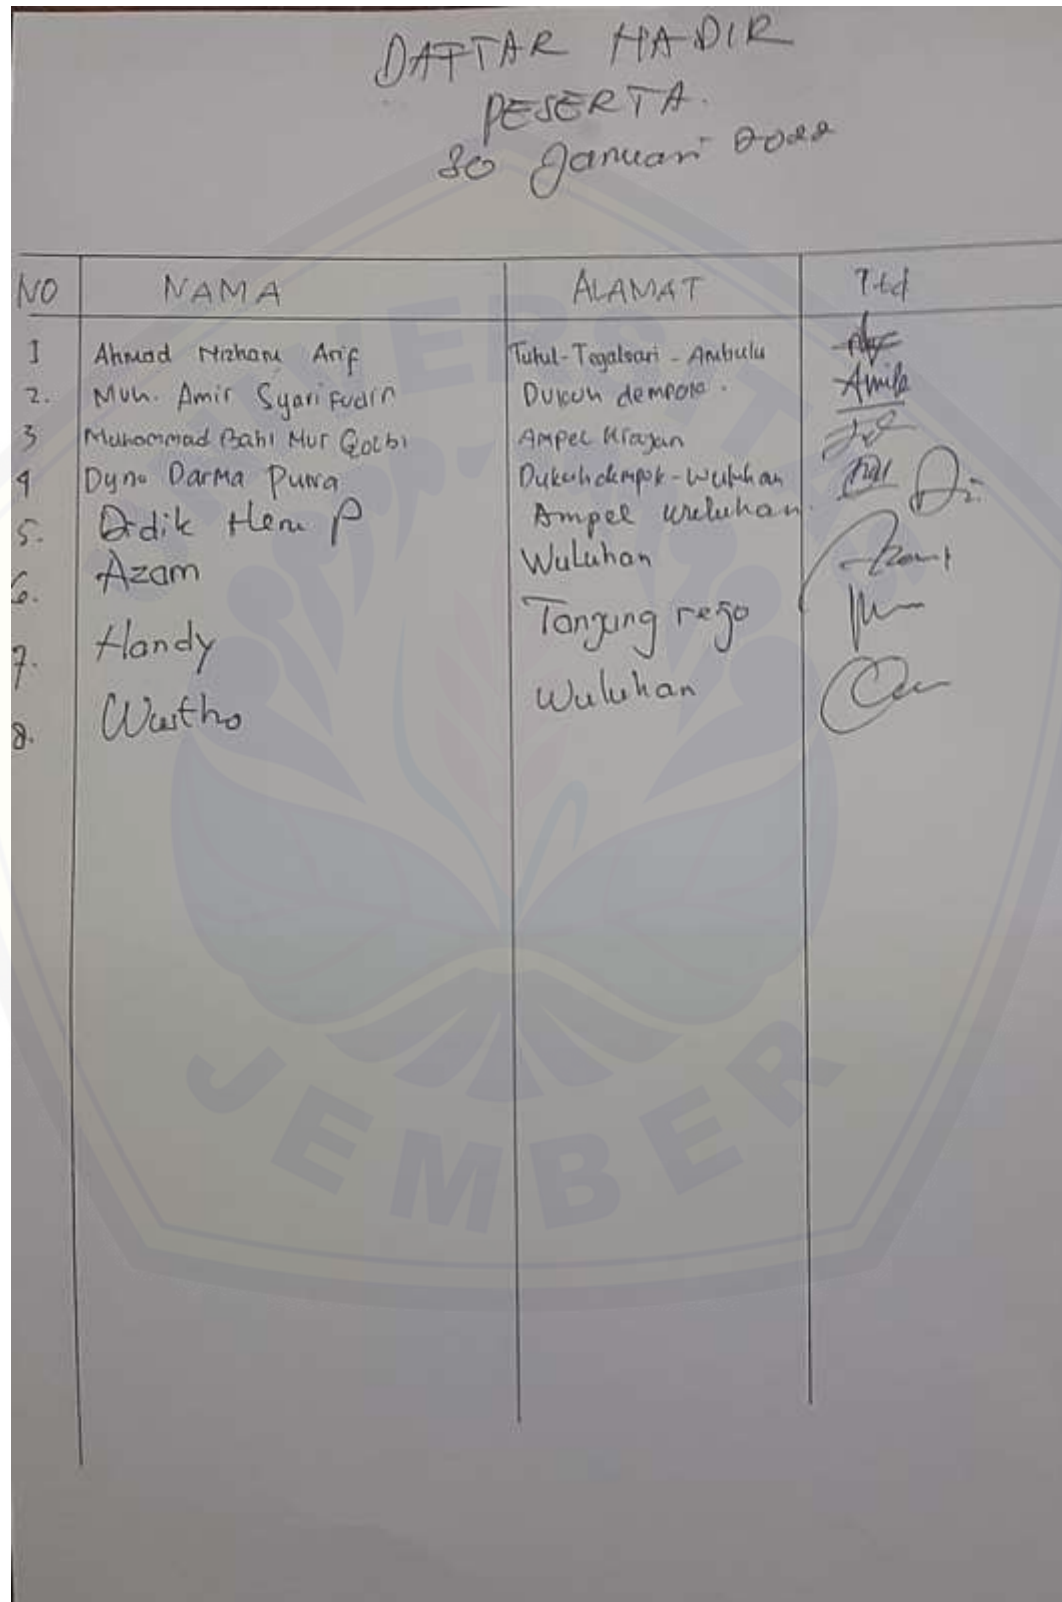 DAFTAR HADIR
PESERTA.
30 Januari 2022
NO NAMA ALAMAT Ttd
1 Ahmad Nizham Arif Tutul-Tegalsari-Ambulu
2. Muh. Amir Syarifudin Dukuh dempok. Amir
3 Muhammad Bahi Nur Qolbi Ampel Krajan
4 Dyno Darma Putra Dukuh dempok-Wuluhan
5. Didik Heru P Ampel Wuluhan.
6. Azam Wuluhan Azam
7. Handy Tanjung rejo
8. Wustho Wuluhan
UNIVERSITAS
JEMBER